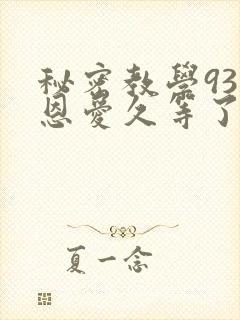 秘密教学93
恩爱久等了
夏一念